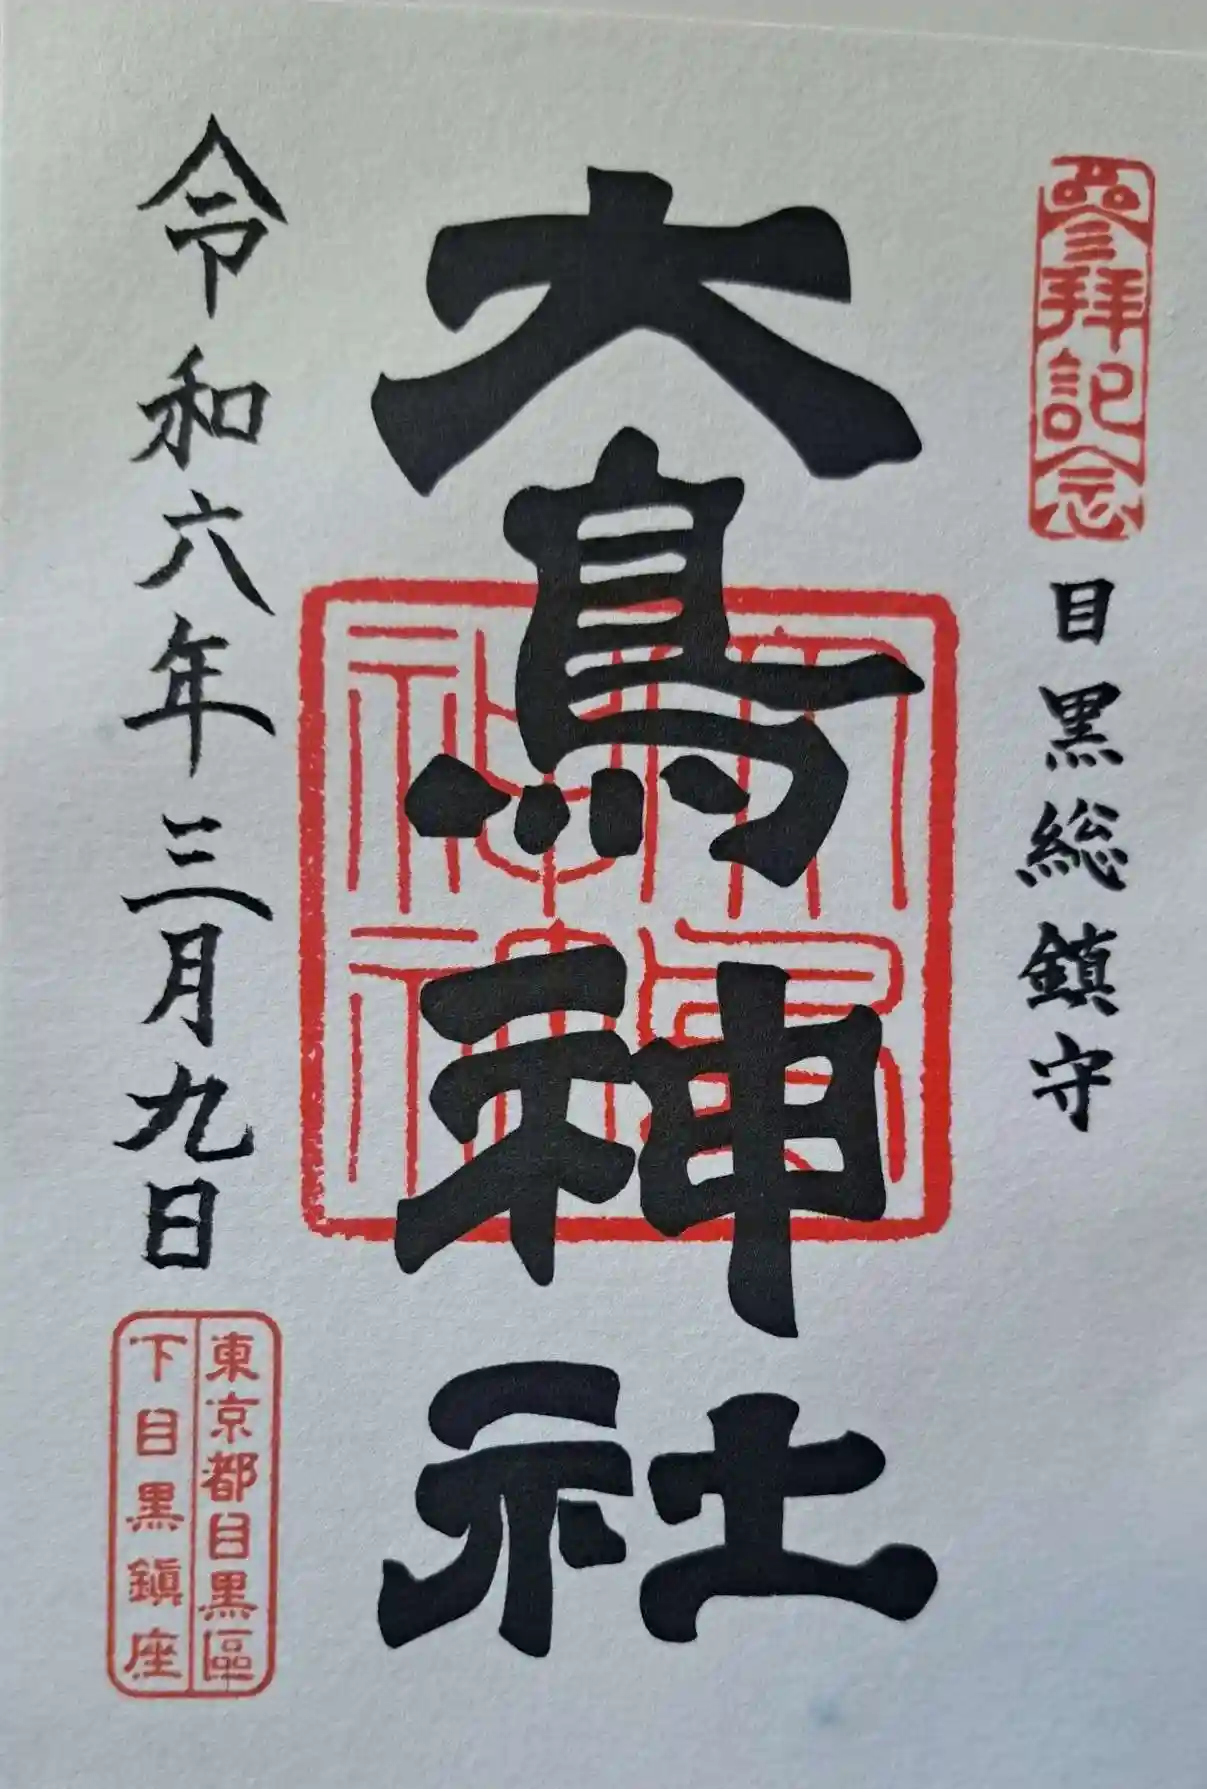 參拜記念
目黒総鎮守
大鳥神社
大鳥
神社
令和六年三月九日
東京都目黒區
下目黒鎮座